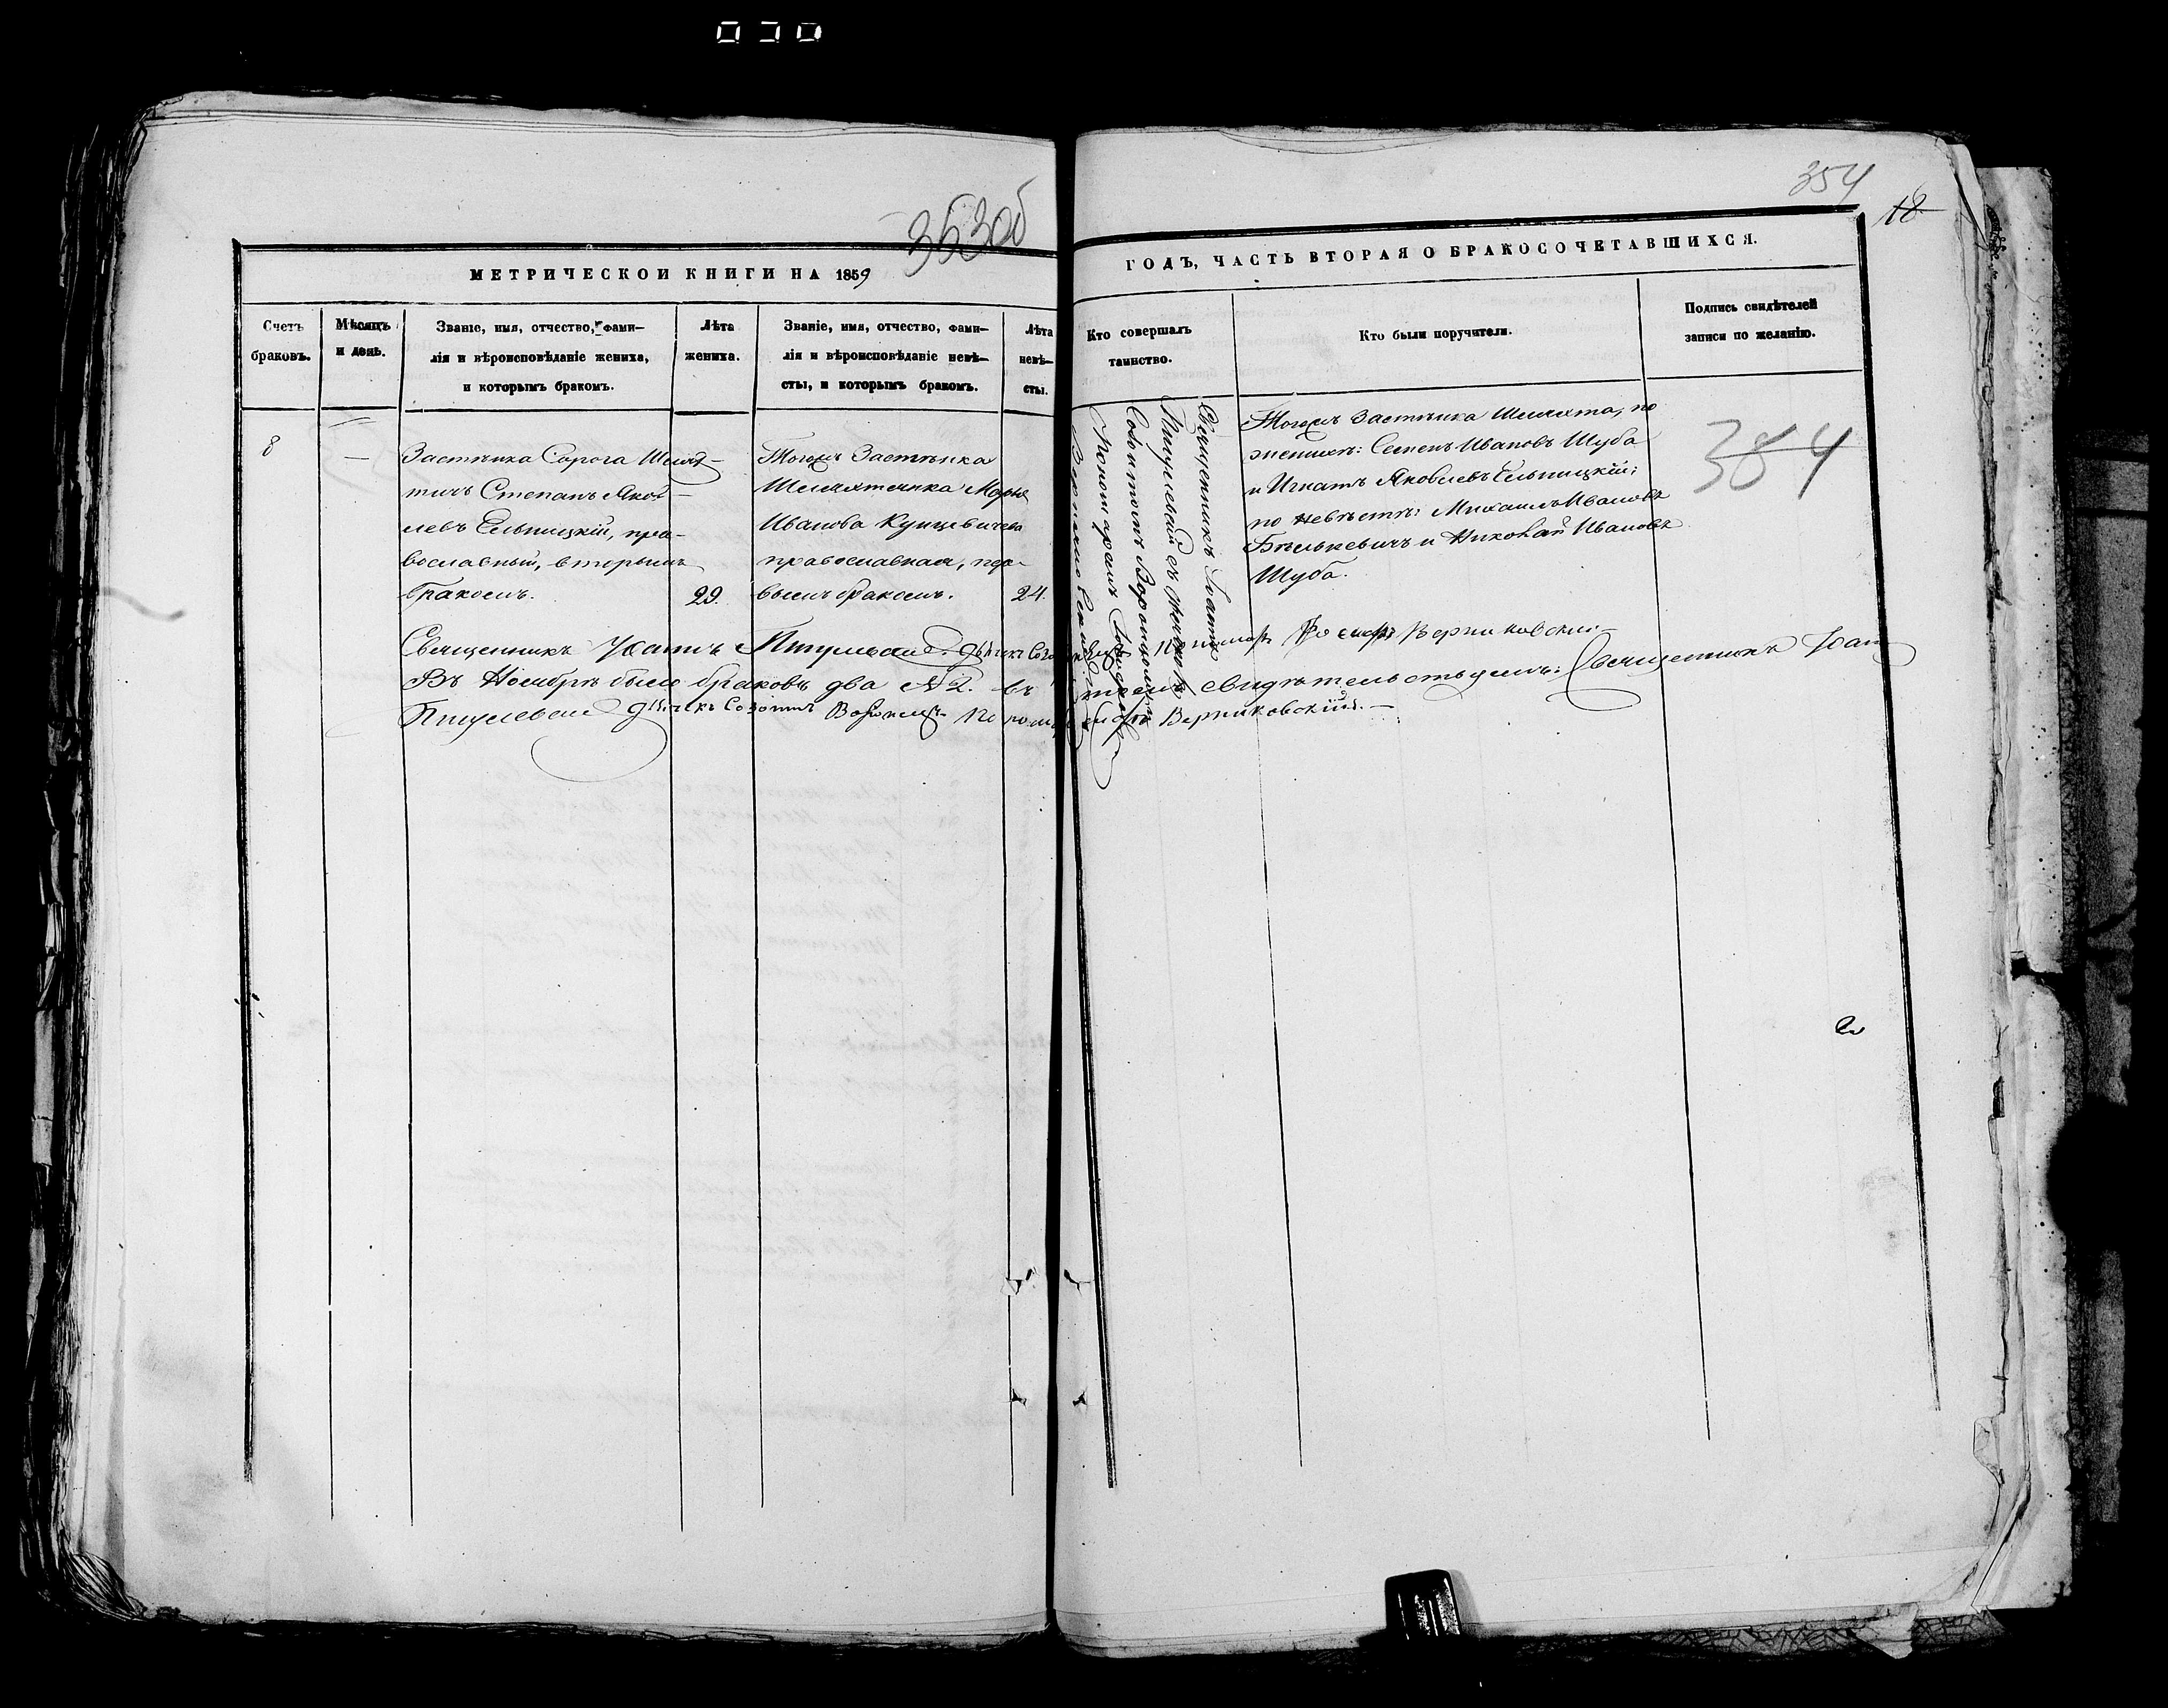 353об
354
18
МЕТРИЧЕСКОЙ КНИГИ НА 1859
ГОДЪ, ЧАСТЬ ВТОРАЯ О БРАКОСОЧЕТАВШИХСЯ.
Счетъ
браковъ.
Мѣсяцъ
и день.
Званіе, имя, отчество, фами–
лія и вѣроисповѣданіе жениха,
и которымъ бракомъ.
Лѣта
жениха.
Званіе, имя, отчество, фами–
лія и вѣроисповѣданіе невѣ–
сты, и которымъ бракомъ.
Лѣта
невѣ–
сты.
Кто совершалъ
таинство.
Кто были поручители.
Подпись свидѣтелей
записи по желанію.
8
Застѣнка Сорога Шлях–
тичъ Степанъ Яков–
левъ Ельницкій, пра–
вославный, вторымъ
бракомъ.
29.
Тогожъ Застѣнка
Шляхтянка Марья
Иванова Кунцевичева
православная, пер–
вымъ бракомъ.
24.
Священникъ Іоаннъ
Пигулевскій съ дьячкомъ
Созонтомъ Воронцомъ и
Пономаремъ Іосифомъ
Верниковскимъ
Тогожъ Застѣнка Шляхта, по
женихѣ: Семенъ Ивановъ Шуба
и Игнатъ Яковлевъ Ельницкій;
по невѣстѣ: Михаилъ Ивановъ
Бѣлькевичъ и Николай Ивановъ
Шуба.
384
Священникъ Іоаннъ Пигулевскій. Дьячекъ Созонтъ Пономарь Іосифъ Верниковскій
Въ Ноябрѣ было браковъ два № 2. въ томъ свидѣтельствуемъ: Священникъ Іоаннъ
Пигулевскій Дьячекъ Созонтъ Воронецъ Пономарь Іосифъ Верниковскій. —